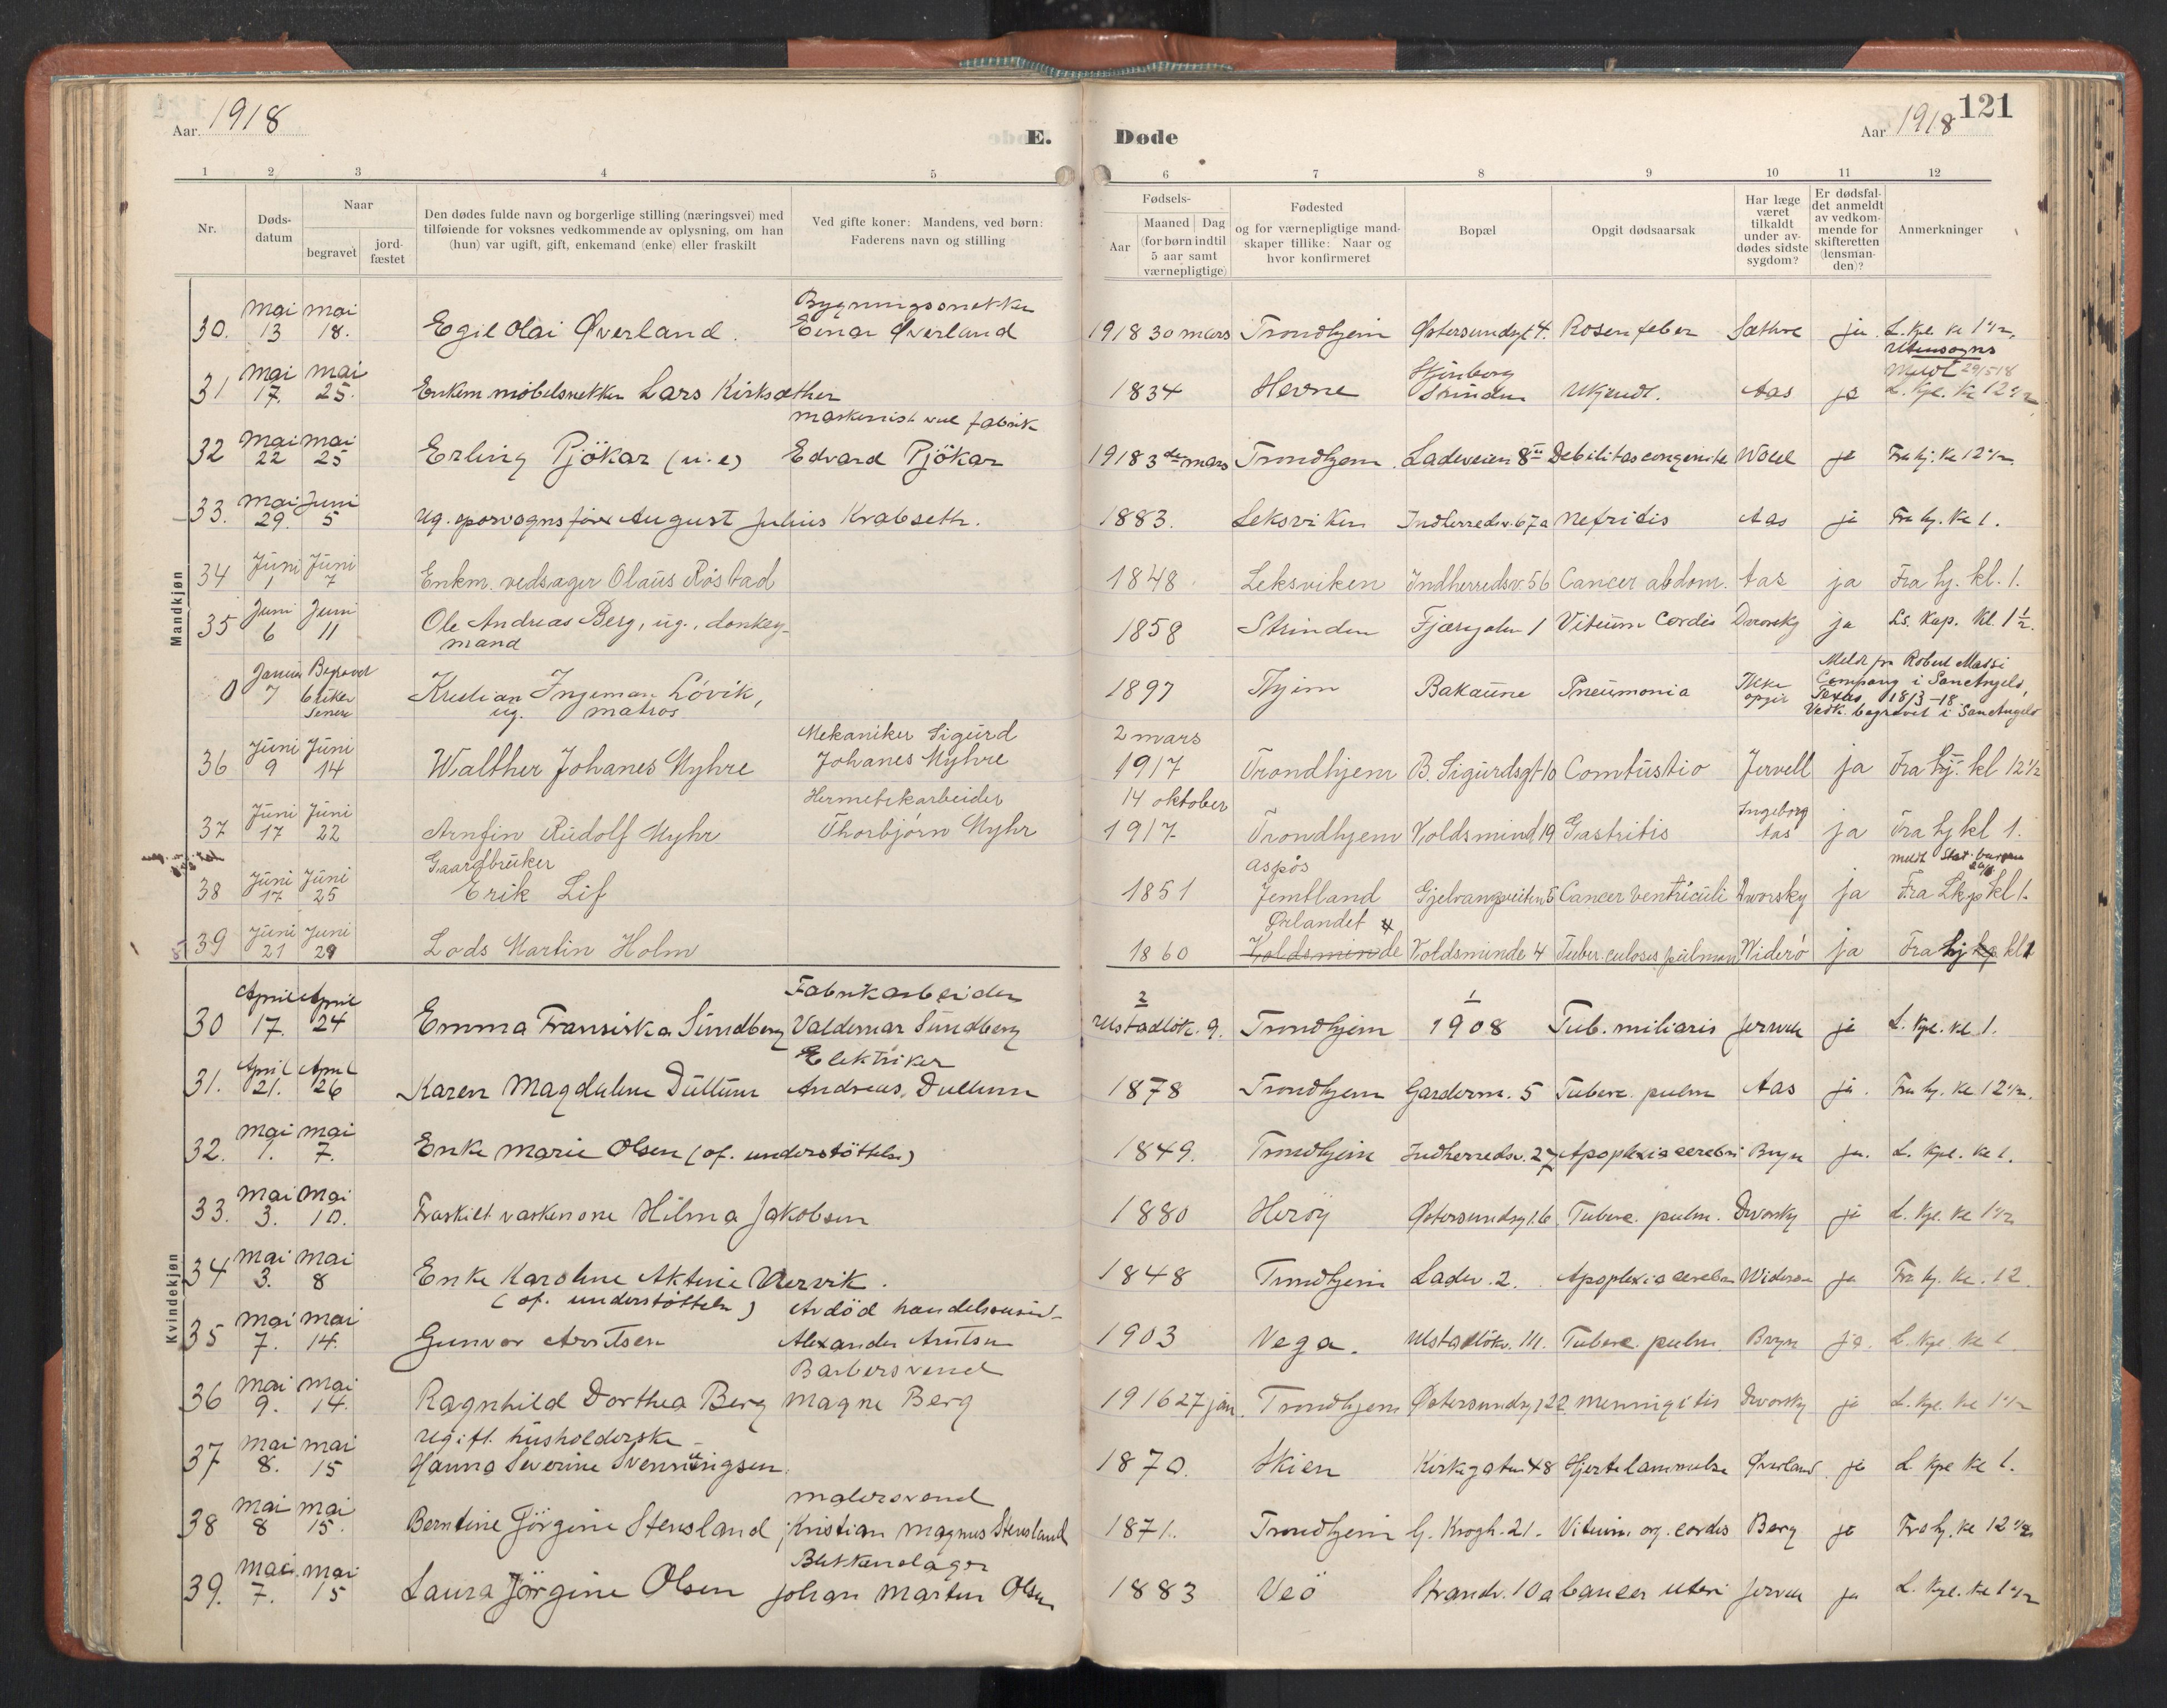 Aar. 1918
E.
Døde
Aar 1918
121
1 2 3 4 5 6 7 8 9 10 11 12
Nr.
Døds-
datum
Naar
begravet
jord-
fæstet
Den dødes fulde navn og borgerlige stilling (næringsvei) med
tilføiende for voksnes vedkommende av oplysning, om han
(hun) var ugift, gift, enkemand (enke) eller fraskilt
Ved gifte koner: Mandens, ved børn:
Faderens navn og stilling
Fødsels-
Aar
Maaned Dag
(for børn indtil
5 aar samt
værnepligtige)
Fødested
og for værnepligtige mand-
skaper tillike: Naar og
hvor konfirmeret
Bopæl
Opgit dødsaarsak
Har læge
været
tilkaldt
under av-
dødes sidste
sygdom?
Er dødsfal-
det anmeldt
av vedkom-
mende for
skifteretten
(lensman-
den)?
Anmerkninger
Mandkjøn
mai mai Bygningssnekker
30. 13 18. Egil Olai Øverland. Einar Øverland 1918 30 mars Trondhjem Østersundsgt 4. Rosenfeber Sæthre ja L. kpl. kl 1 1/2
Utensogns
mai mai Strinden meldt 29/5 18
31 17. 25. Enkem møbelsnekker Lars Kirksæther 1834 Hevne Ukjendt. Aas ja L. kpl. kl 12 1/2
maskinist ved fabrik
mai mai
32 22 25 Erling Pjökar (u.e) Edvard Pjökar 1918 3 mars Trondhjem Ladeveien 8 Debilitas congenita ja Fra hj. kl 12 1/2
mai Juni
33. 29. 5 ug. sporvognsfører August Julius Krabseth. 1883. Leksviken Indherredsv. 67a Nefritis Aas ja Fra hj. kl 1.
Juni Juni
34 1 7 Enkm. vedsager Olaus Röstad 1848 Leksviken Indherredsv. 56 Cancer abdom. Aas ja Fra hj. kl. 1.
Juni Juni
35 6 11 Ole Andreas Berg, ug., donkey-
mand 1858 Strinden 1 Vitium Cordis Dworsky ja Ls. Kap. Kl. 1 1/2.
Januar Begravet
0 7 6 uker
senere Kristian Ingeman Lövik,
ug. matros 1897 Thjem Bakaune Pneumonia Ikke
opgit Meldt fra Robert Massi
Company i San Angelo,
Texas, 18/3-18
Vedk. begravet i San Angelo
Mekaniker Sigurd 2 mars
Juni Juni
36 9 14 Walther Johanes Myhre Johanes Myhre 1917 Trondhjem B. Sigurdsgt 10 Combustio Jervell ja Fra hj. kl 12 1/2
Hermetikarbeider 14 oktober Ingeborg
Juni Juni
37 17 22 Arnfin Rudolf Myhr Thorbjörn Myhr 1917 Trondhjem Voldsmind 19 Gastritis Aas ja Fra hj kl 1.
Gaardbruker Aspös
Juni Juni
38 17 25 Erik Lif 1851 Jemtland Gjelvangveiten 5 Cancer ventriculi Dworsky ja Fra Lkp kl 1.
Ørlandet
Juni Juni
39 21 29 Lods Martin Holm 1860 Voldsminde Voldsminde 4 Tuberculosis pulmon Widerö ja Fra hj kl 1
Kvindekjøn
April April Fabrikarbeider 2 1
30 17. 24 Emma Fransiska Sundberg Valdemar Sundberg Ulstadlök. 9. Trondhjem 1908 Tub. miliaris Jervell ja L. kpl. kl 1.
April April Elektriker
31. 21. 26 Karen Magdalene Dullum Andreas Dullum 1878 Trondhjem Garderm. 5 Tuberc. pulm Aas ja. Fra hj. kl 12 1/2.
mai mai
32. 1. 7. Enke Marie Olsen (of. understöttelse) 1849. Trondhjem Indherredsv. 27 Apoplexia cerebri Bryn ja. L. kpl. kl 1.
mai mai
33. 3. 10. Fraskilt vaskekone Hilma Jakobsen 1880 Heröy Østersundsgt. 6 Tuberc. pulm. Dworsky ja L. kpl. kl 1 1/2
mai mai
34 3. 8 Enke Karoline Aktine Ulervik. 1848 Trondhjem Ladev. 2. Apoplexia cerebri Wideröe ja Fra hj. kl. 12
(of. understöttelse) Avdöd
mai mai
35 7. 14. Gunvor Arntsen Alexander Arntsen 1903 Vega. Ulstadlökv. 11. Tuberc. pulm. Bryn ja. L. kpl. kl 1
Barbersvend
mai mai
36 9. 14. Ragnhild Dorthea Berg Magne Berg 1916 27 jan. Trondhjem Østersundsgt 22 Meningitis Dworsky ja L. kpl. kl 1 1/2
ugift husholderske
mai mai
37 8. 15 Hanna Severine Svenningsen. 1870. Skien Kirkegaten 48 Hjertelammelse Øverland ja L. kpl kl 1.
malersvend
mai mai
38 8 15. Berntine Jörgine Stensland Kristian Magnus Stensland 1871. Trondhjem G. Krogh. 21. Vitium org. cordis Berg ja Fra hj. kl 12 1/2
Blikkenslager
mai mai
39. 7. 15 Laura Jörgine Olsen Johan Martin Olsen 1883 Veö Strandv. 10a Cancer uteri Jervell ja L. kpl. kl 1 1/2